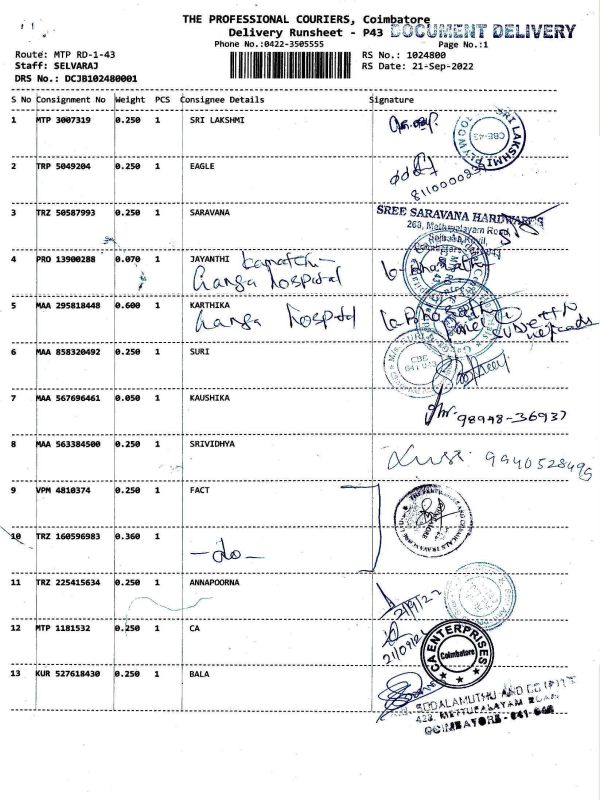 THE PROFESSIONAL COURIERS, Coimbatore
Delivery Runsheet - P43
DOCUMENT DELIVERY
Phone No.:0422-3505555
Page No.:1
Route: MTP RD-1-43
RS No.: 1024800
Staff: SELVARAJ
RS Date: 21-Sep-2022
DRS No.: DCJB102480001
S No Consignment No Weight PCS Consignee Details Signature
1 MTP 3007319 0.250 1 SRI LAKSHMI
SRI LAKSHMI PLY
CBE-43
2 TRP 5049204 0.250 1 EAGLE
3 TRZ 50587993 0.250 1 SARAVANA
SREE SARAVANA HARDWARES
263, Mettupalayam Road,
4 PRO 13900288 0.070 1 JAYANTHI
Ganga hospital
5 MAA 295818448 0.600 1 KARTHIKA
Ganga hospital
6 MAA 858320492 0.250 1 SURI
CBE
641 043
7 MAA 567696461 0.050 1 KAUSHIKA
98948-36937
8 MAA 563384500 0.250 1 SRIVIDHYA
9940528495
9 VPM 4810374 0.250 1 FACT
10 TRZ 160596983 0.360 1
-do-
11 TRZ 225415634 0.250 1 ANNAPOORNA
21/9/22
12 MTP 1181532 0.250 1 CA
21/09/22
CA ENTERPRISES
Coimbatore
13 KUR 527618430 0.250 1 BALA
SUDALAMUTHU AND CO
423, METTUPALAYAM ROAD
COIMBATORE - 641